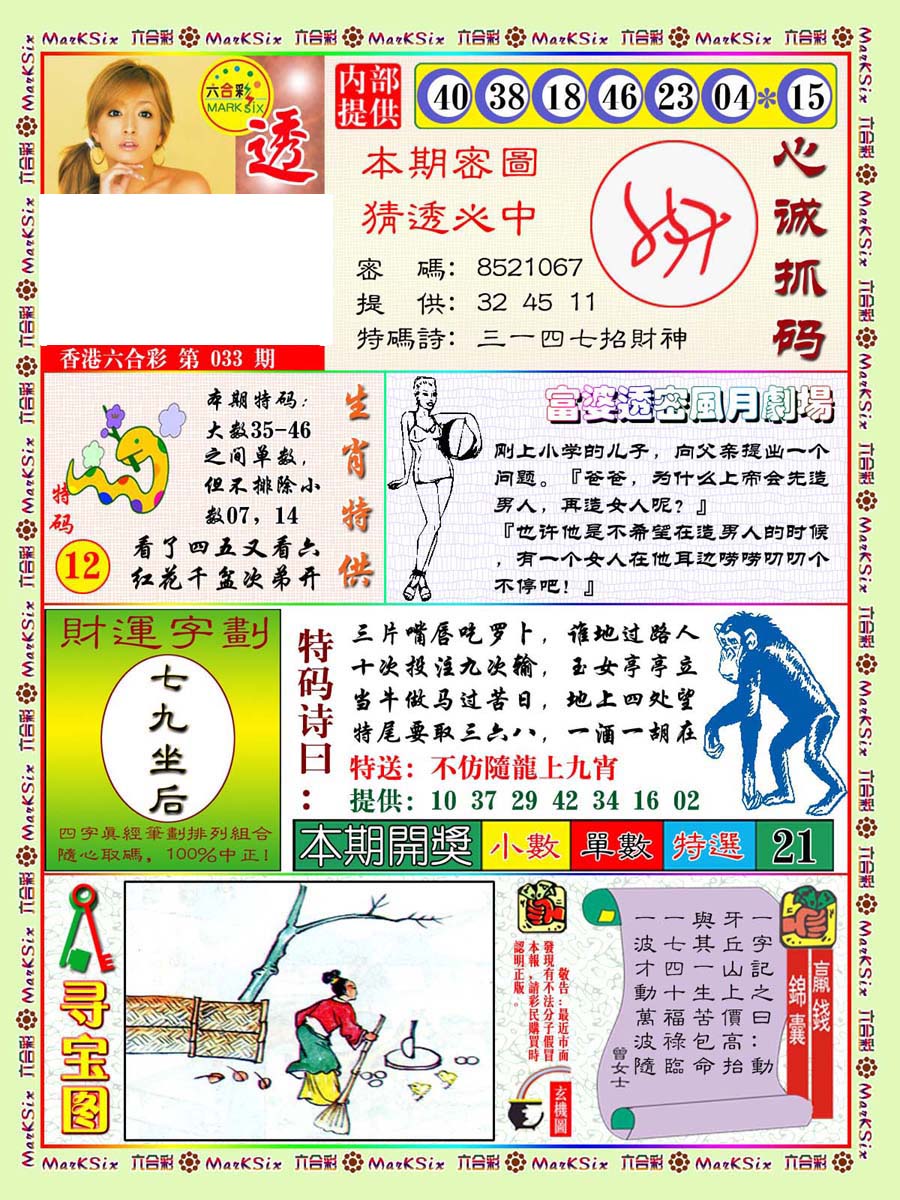 MarKSix 六合彩 MarKSix 六合彩 MarKSix 六合彩 MarKSix 六合彩 MarKSix 六合彩
六合彩
MARK SIX
透
内部
提供
40 38 18 46 23 04 * 15
本期密圖
猜透必中
密 碼：8521067
提 供：32 45 11
特碼詩：三一四七招財神
心诚抓码
香港六合彩 第 033 期
本期特码：
大数35-46
之间单数，
但不排除小
数07，14
看了四五又看六
红花千盆次弟开
特码
12
生肖特供
富婆透密風月劇場
刚上小学的儿子，向父亲提出一个
问题。『爸爸，为什么上帝会先造
男人，再造女人呢？』
『也许他是不希望在造男人的时候
，有一个女人在他耳边唠唠叨叨个
不停吧！』
財運字劃
七九坐后
四字真經筆劃排列組合
隨心取碼，100%中正！
特码诗曰：
三片嘴唇吃罗卜，谁地过路人
十次投注九次输，玉女亭亭立
当牛做马过苦日，地上四处望
特尾要取三六八，一酒一胡在
特送：不仿隨龍上九宵
提供：10 37 29 42 34 16 02
本期開獎 小數 單數 特選 21
寻宝图
敬告：最近市面
發現有不法分子假冒
本報，請彩民購買時
認明正版。
玄機圖
贏錢
錦囊
一字記之曰：動
牙丘山上價高抬
與其一生苦包命
一七四十福祿臨
一波才動萬波隨
曾女士
MarKSix 六合彩 MarKSix 六合彩 MarKSix 六合彩 MarKSix 六合彩 MarKSix 六合彩